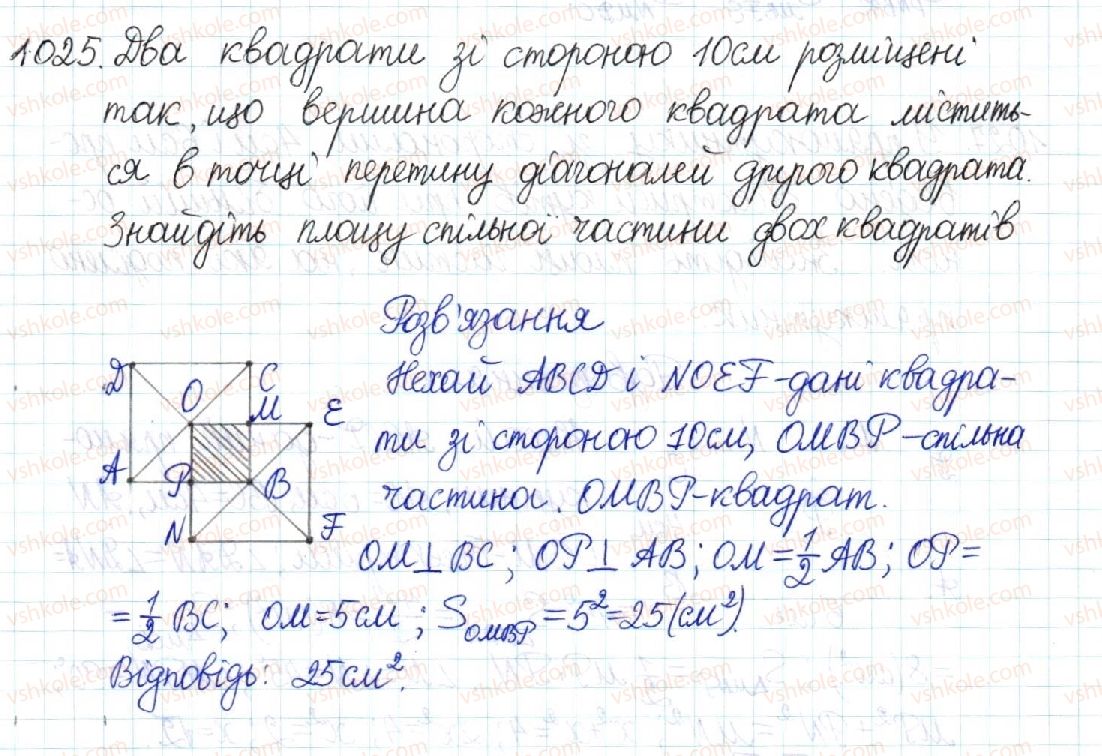 1025. Два квадрати зі стороною 10см розміщені
так, що вершина кожного квадрата містить-
ся в точці перетину діагоналей другого квадрата.
Знайдіть площу спільної частини двох квадратів
Розв'язання
Нехай ABCD і NOEF - дані квадра-
ти зі стороною 10см, OMBP - спільна
частина. OMBP - квадрат.
OM ⊥ BC; OP ⊥ AB; OM = 1/2 AB; OP =
= 1/2 BC; OM = 5см; S OMBP = 5² = 25 (см²).
Відповідь: 25 см².
D
O
C
M
E
A
P
B
N
F
vshkole.com